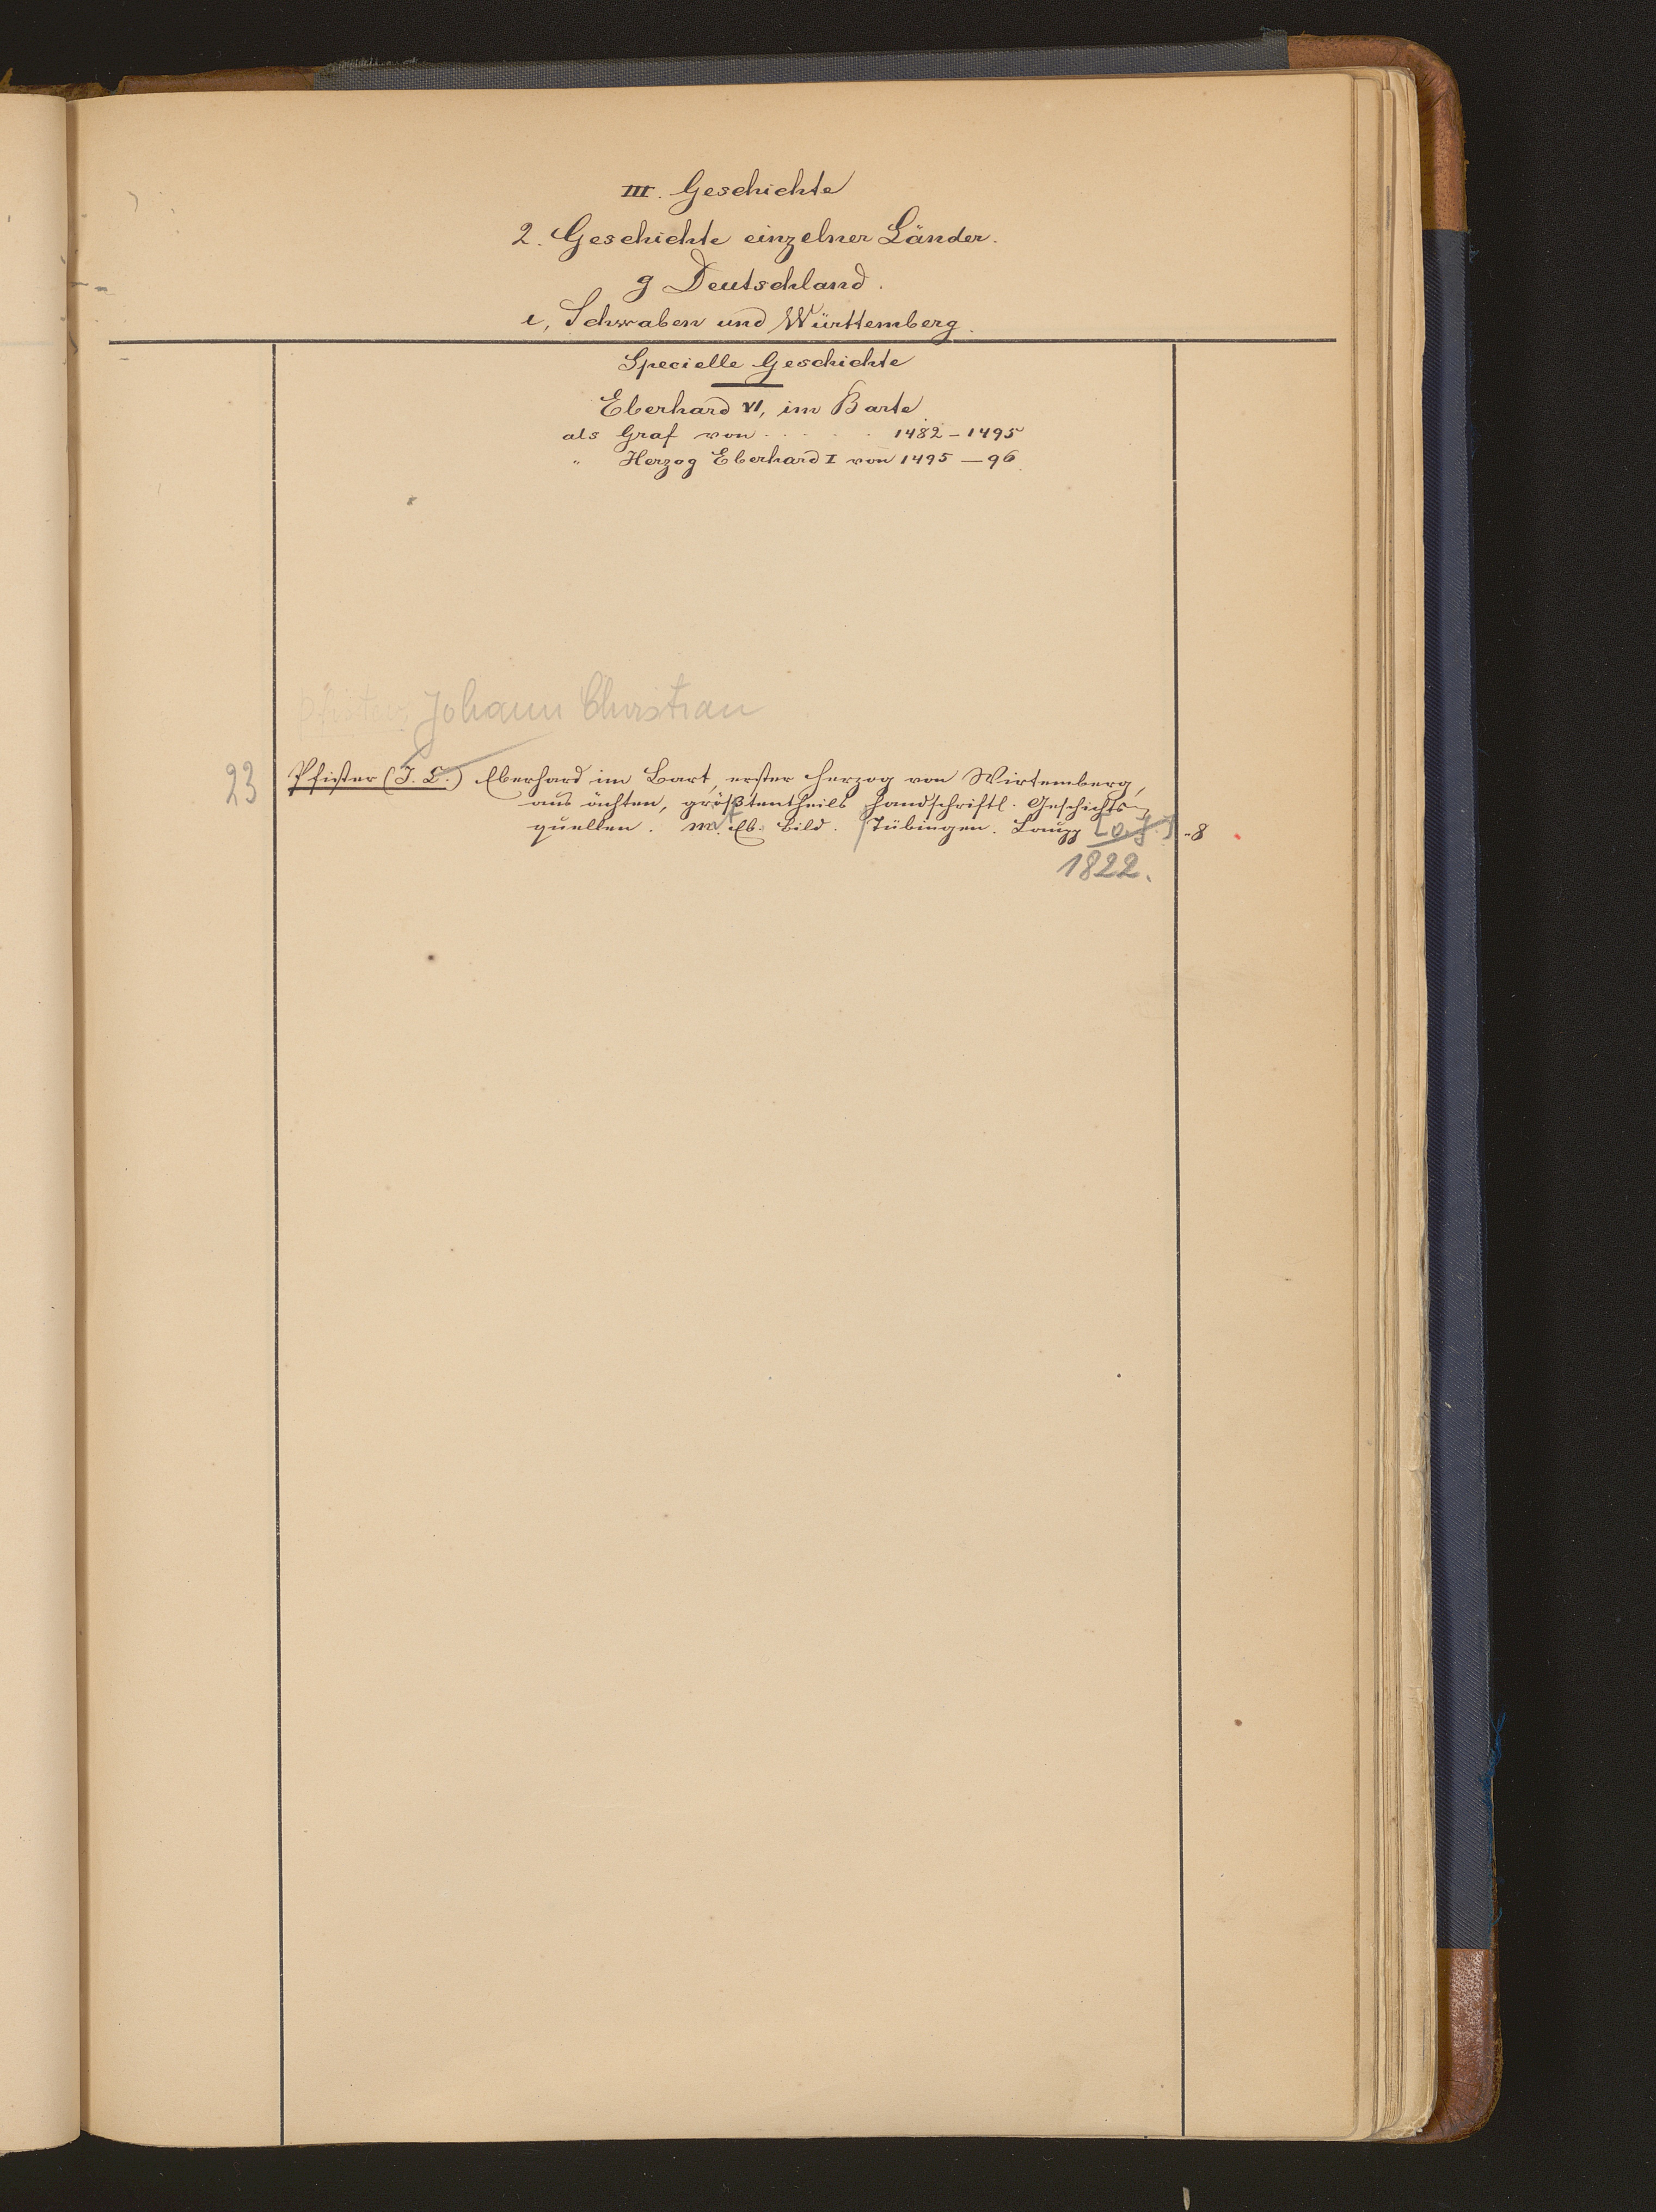 III. Geschichte
2. Geschichte einzelner Länder.
g Deutschland.
e, Schwaben und Württemberg.
Specielle Geschichte
Eberhard VI, im Barte
als Graf von . . . . . 1482–1495
" Herzog Eberhard I von 1495–96.
Pfister, Johann Christian
23 Pfister (J. C.) Eberhard im Bart, erster Herzog von Wirtemberg,
aus ächten, größtentheils handschriftl. Geschichts-
quellen. M. Eb. Bild. Tübingen. Laupp [o. J.] -8
1822.